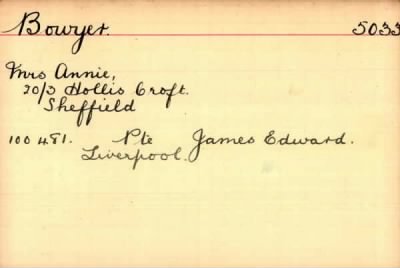 Bowyer. 5033
Mrs Annie,
20/3 Hollis Croft.
Sheffield
100481. Pte James Edward.
Liverpool.